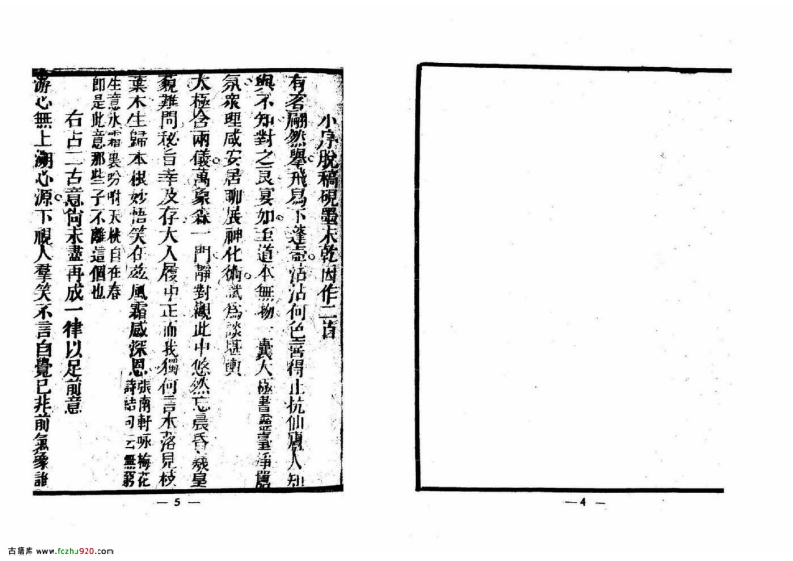 小序脫稿硯墨未乾因作二首
有客翩然擧飛舄下蓬壺沽沽何色喜得止抗仙廬人知
與不知對之良宴如至道本無物一糞太極書靈臺淨
氛衆理咸安居聊展神化術試爲談堪輿
太極含兩儀萬象森一門靜對觀此中悠然忘晨昏羲皇
藐難問秘旨幸及存大人履中正而我獨何言木落見枝
葉木生歸本根妙悟笑在玆風霜感深恩張南軒咏梅花
詩結句云無窮
生意氷霜裏吩咐天桃自在春
卽是此意那些子不離這個也
右占二古意尙未盡再成一律以足前意
游心無上溯心源下視人羣笑不言自覺已非前氣象誰
— 5 —
— 4 —
古籍库 www.fczhu920.com